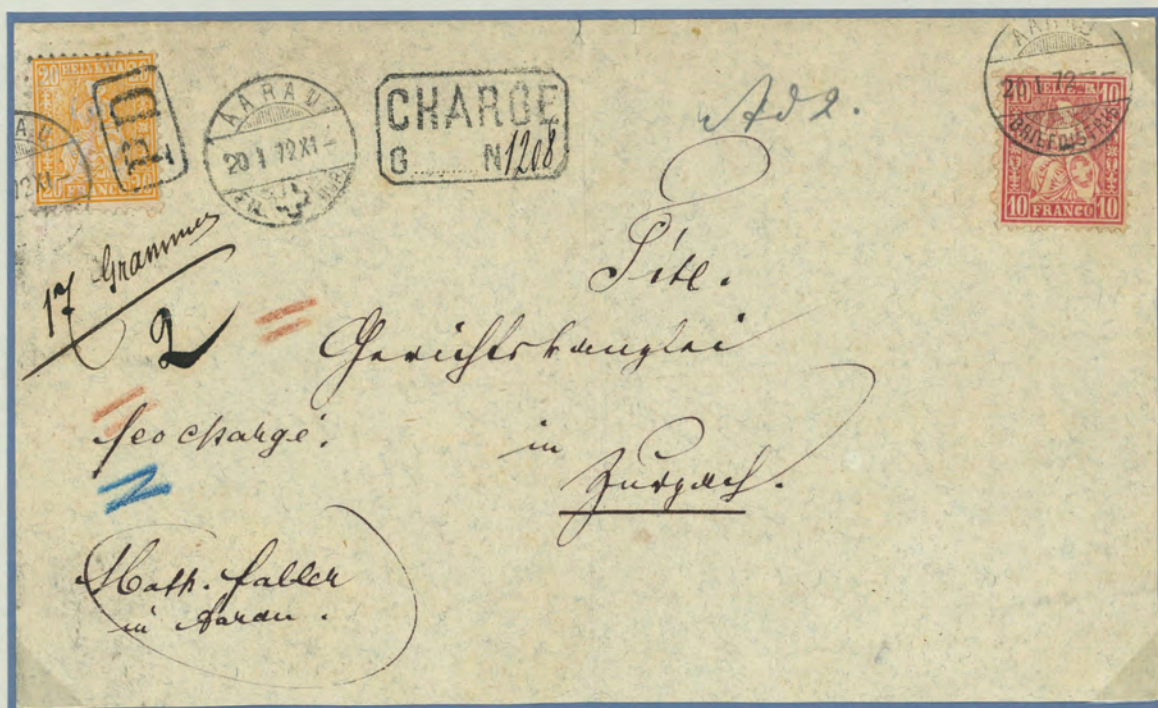 20 HELVETIA 20
20 FRANCO 20
PD
AARAU
20 I 72 XI -
CHARGE
G N 1208
AARAU
20 I 72 - -
10 HELVETIA 10
10 FRANCO 10
17 Grammes
2
Titl.
Gerichtskanzlei
fco chargé.
in
Zurzach.
Math. Faller
in Aarau.